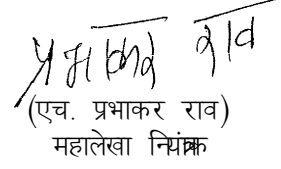 प्रभाकर राव
(एच. प्रभाकर राव)
महालेखा नियंत्रक